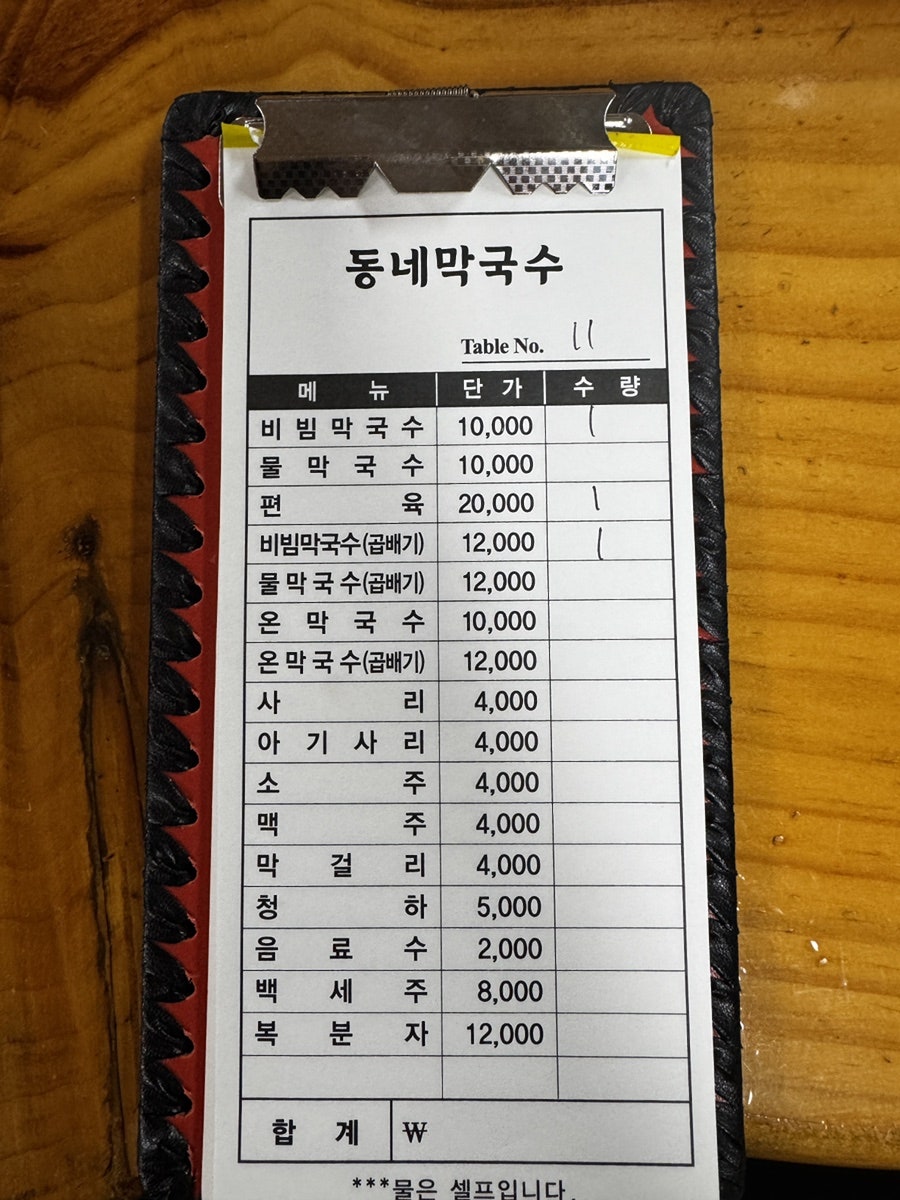 동네막국수
Table No. 11
메 뉴 단 가 수 량
비 빔 막 국 수 10,000 1
물 막 국 수 10,000
편 육 20,000 1
비빔막국수(곱배기) 12,000 1
물 막 국 수(곱배기) 12,000
온 막 국 수 10,000
온 막 국 수(곱배기) 12,000
사 리 4,000
아 기 사 리 4,000
소 주 4,000
맥 주 4,000
막 걸 리 4,000
청 하 5,000
음 료 수 2,000
백 세 주 8,000
복 분 자 12,000
합 계 ₩
***물은 셀프입니다.